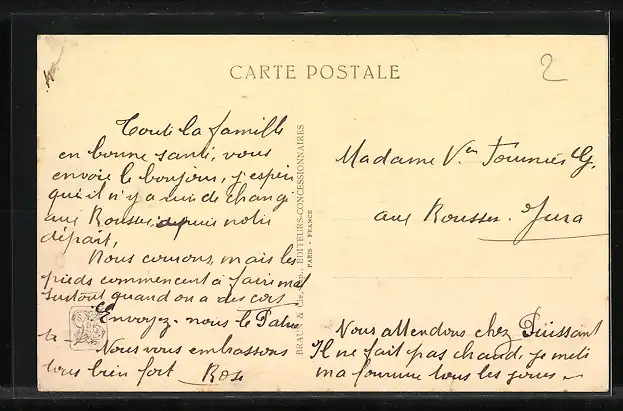 CARTE POSTALE
2
Toute la famille
en bonne santé, vous
envoie le bonjour, j'espère
qu'il n'y a rien de changé
aux Rousses, depuis notre
départ.
Nous courons, mais les
pieds commencent à faire mal
surtout quand on a des cors
Envoyez-nous le
Nous vous embrassons
tous bien fort Rose
BRAUN & Cie, Imp., EDITEURS-CONCESSIONNAIRES
PARIS - FRANCE
Madame Vve G.
aux Rousses. Jura
Nous attendons chez Puissant
Il ne fait pas chaud, je mets
ma fourrure tous les jours